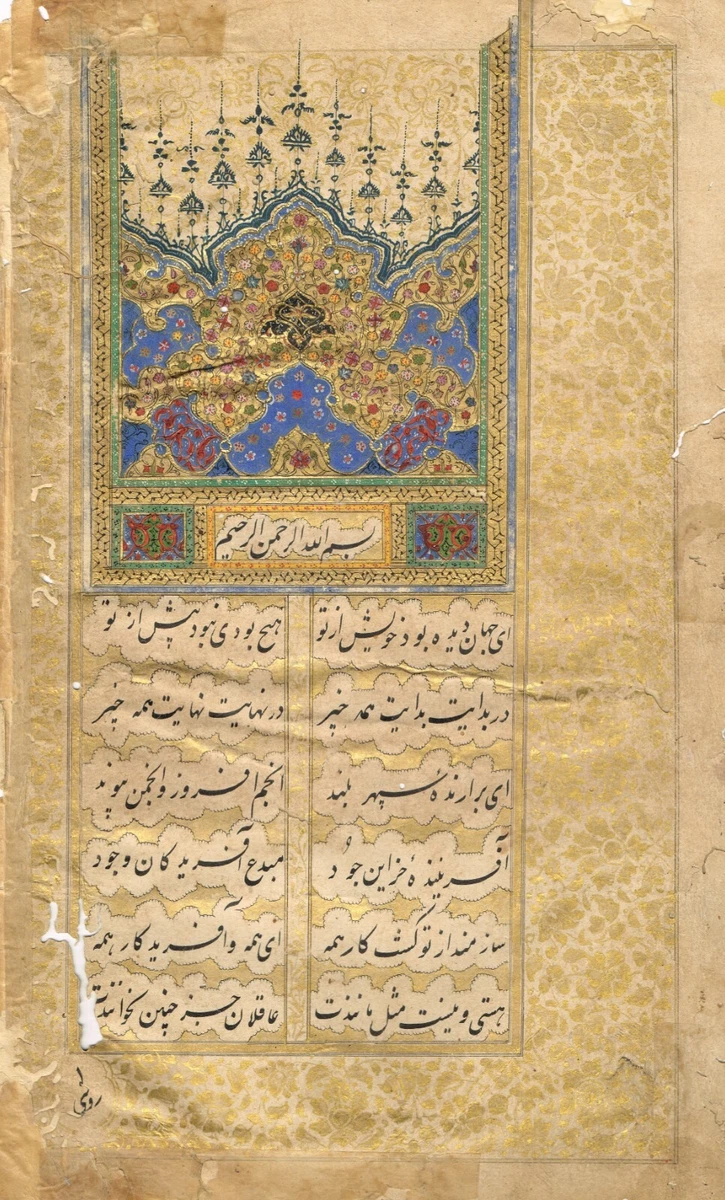 بسم الله الرحمن الرحیم
ای جهان دیده بود خویش از تو
هیچ بودی نبود پیش از تو
در بدایت بدایت همه چیز
در نهایت نهایت همه چیز
ای برارنده سپهر بلند
انجم افروز و انجمن پیوند
آفریننده خزاین جود
مبدع آفریدکان وجود
سازمند از تو کشت کار همه
ای همه و آفریدکار همه
هستی و نیست مثل مانندت
عاقلان جز چنین نخوانندت
روی